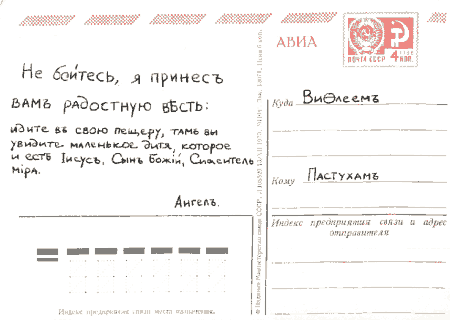 АВИА
ПОЧТА СССР
4 КОП.
Не бойтесь, я принесъ
вамъ радостную вѣсть:
идите въ свою пещеру, тамъ вы
увидите маленькое дитя, которое
и есть Іисусъ, Сынъ Божій, Спаситель
міра.
Ангелъ.
Куда Виѳлеемъ
Кому Пастухамъ
Индекс предприятия связи и адрес
отправителя
Индекс предприятия связи места назначения